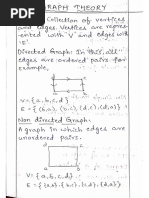 GRAPH THEORY
Collection of vertices
and edges. Vertices are repres-
ented with 'V' and edges with
'E'.
Directed Graph: In this, all
edges are ordered pairs. For
example,
a
d
b
c
V = {a,b,c,d}
Non directed Graph:
A graph in which edges are
unordered pairs.
a
d
b
c
V = {a,b,c,d}